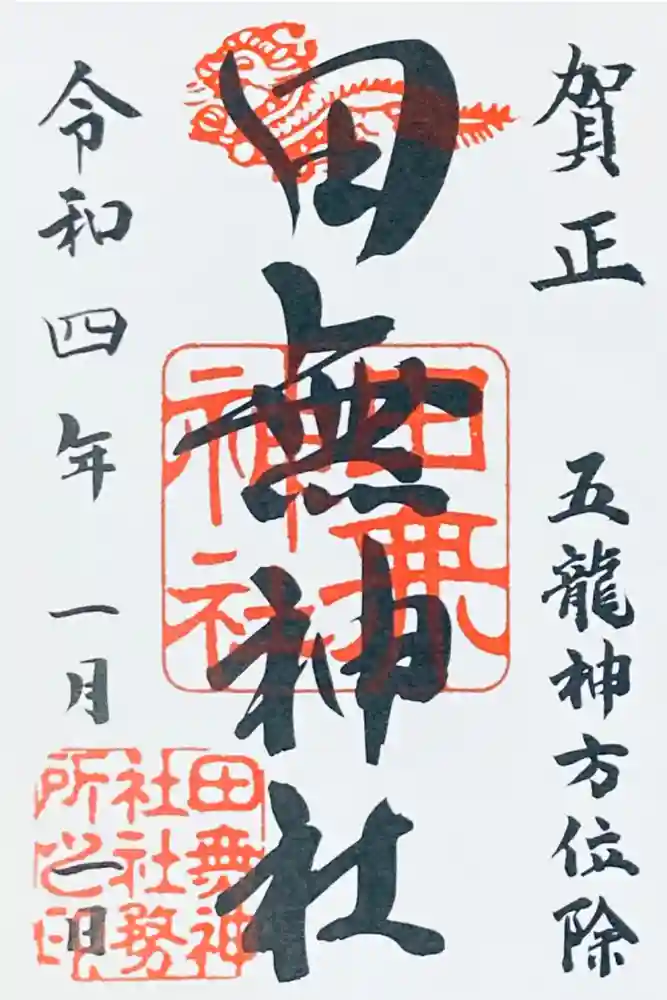 賀正
五龍神方位除
田無神社
令和四年一月一日
田無神社
田無神社社務所之印